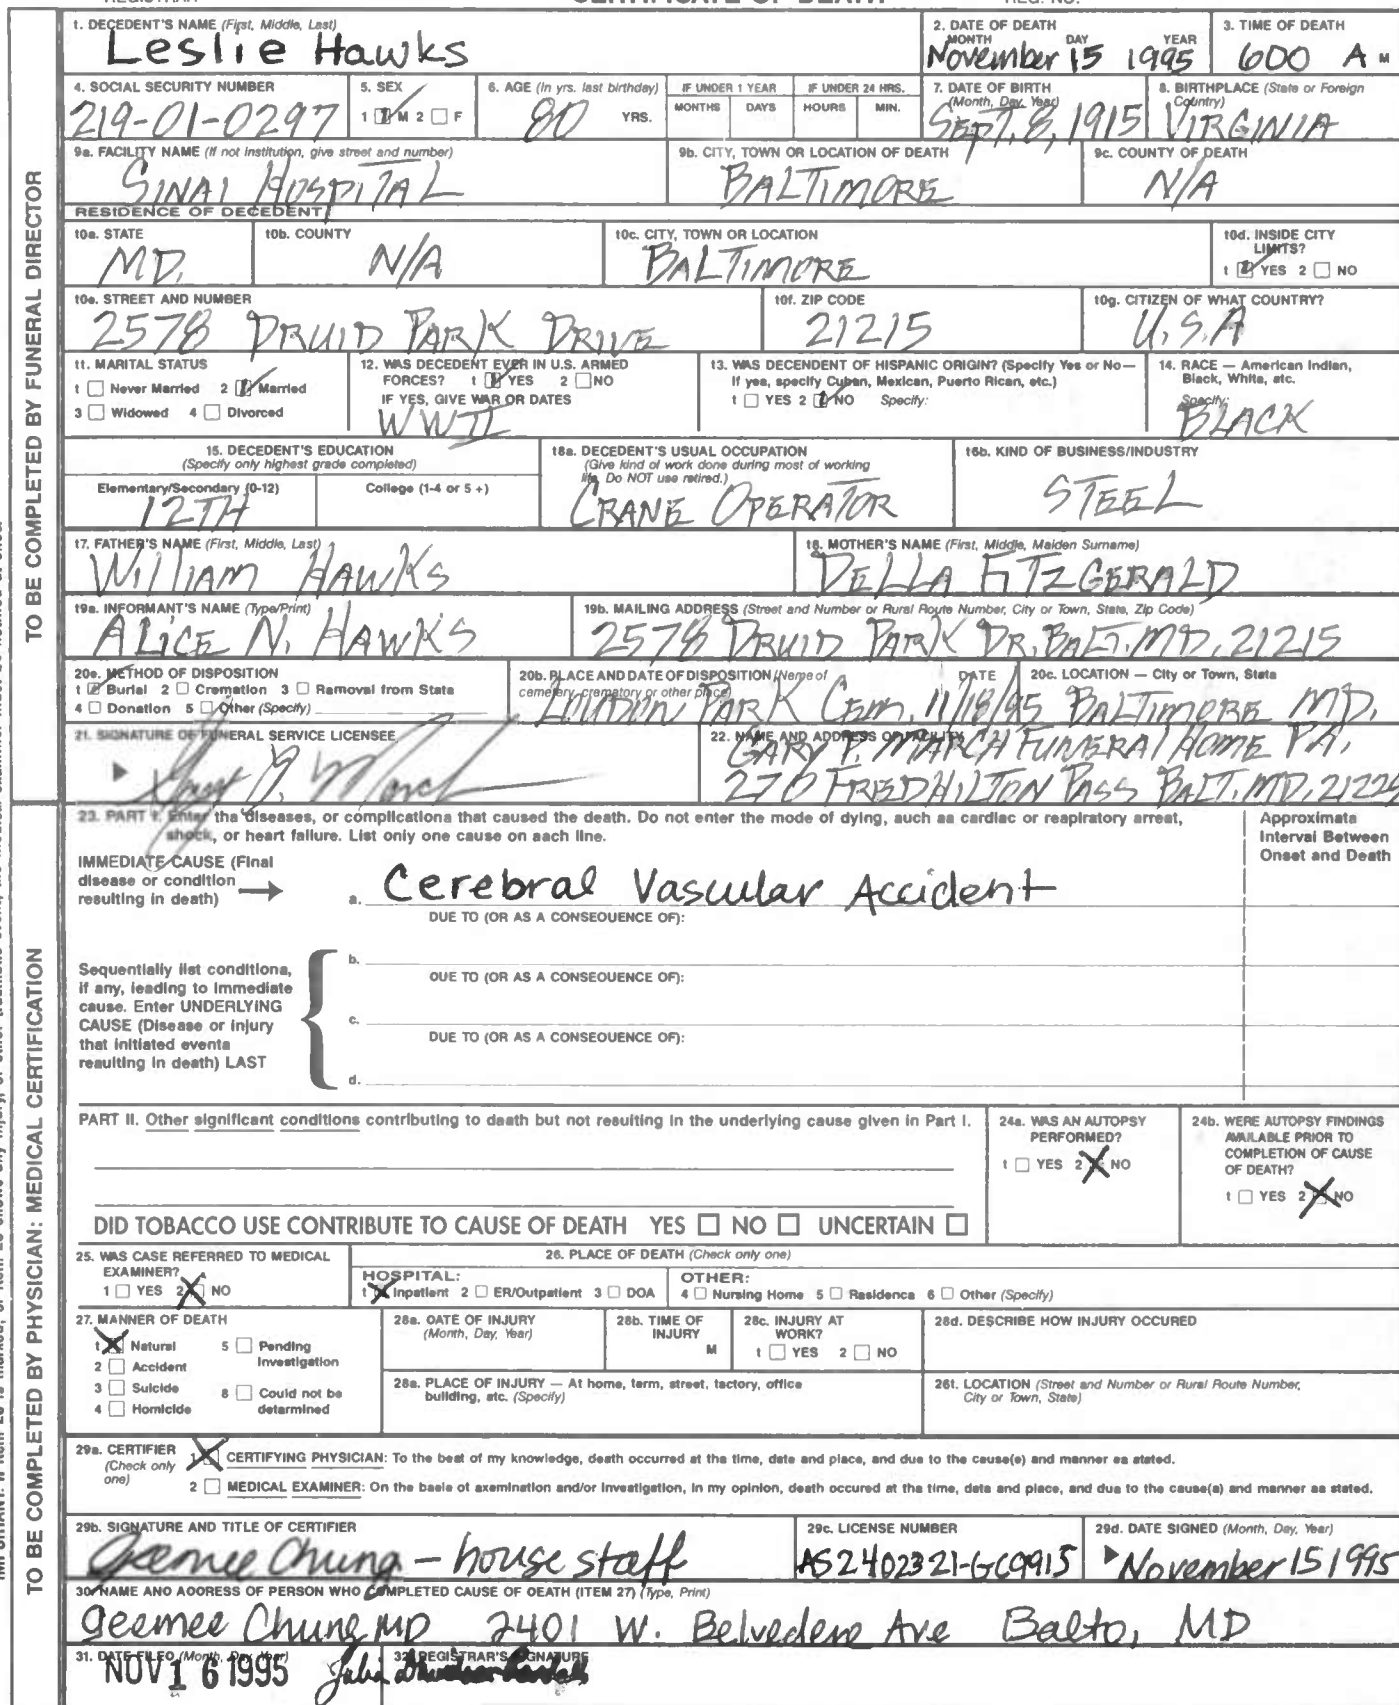 CERTIFICATE OF DEATH
1. DECEDENT'S NAME (First, Middle, Last)
Leslie Hawks
2. DATE OF DEATH
MONTH DAY YEAR
November 15 1995
3. TIME OF DEATH
600 A M
4. SOCIAL SECURITY NUMBER
219-01-0297
5. SEX
1 M 2 F
6. AGE (In yrs. last birthday)
80 YRS.
IF UNDER 1 YEAR
MONTHS DAYS
IF UNDER 24 HRS.
HOURS MIN.
7. DATE OF BIRTH
(Month, Day, Year)
SEPT. 8, 1915
8. BIRTHPLACE (State or Foreign Country)
VIRGINIA
9a. FACILITY NAME (If not institution, give street and number)
SINAI HOSPITAL
9b. CITY, TOWN OR LOCATION OF DEATH
BALTIMORE
9c. COUNTY OF DEATH
N/A
RESIDENCE OF DECEDENT
10a. STATE
MD.
10b. COUNTY
N/A
10c. CITY, TOWN OR LOCATION
BALTIMORE
10d. INSIDE CITY LIMITS?
1 YES 2 NO
10e. STREET AND NUMBER
2578 DRUID PARK DRIVE
10f. ZIP CODE
21215
10g. CITIZEN OF WHAT COUNTRY?
U.S.A
11. MARITAL STATUS
1 Never Married 2 Married
3 Widowed 4 Divorced
12. WAS DECEDENT EVER IN U.S. ARMED
FORCES? 1 YES 2 NO
IF YES, GIVE WAR OR DATES
WWII
13. WAS DECENDENT OF HISPANIC ORIGIN? (Specify Yes or No—
If yes, specify Cuban, Mexican, Puerto Rican, etc.)
1 YES 2 NO Specify:
14. RACE — American Indian,
Black, White, etc.
Specify:
BLACK
15. DECEDENT'S EDUCATION
(Specify only highest grade completed)
Elementary/Secondary (0-12)
12TH
College (1-4 or 5+)
16a. DECEDENT'S USUAL OCCUPATION
(Give kind of work done during most of working
life. Do NOT use retired.)
CRANE OPERATOR
16b. KIND OF BUSINESS/INDUSTRY
STEEL
17. FATHER'S NAME (First, Middle, Last)
William HAWKS
18. MOTHER'S NAME (First, Middle, Maiden Surname)
DELLA FITZGERALD
19a. INFORMANT'S NAME (Type/Print)
ALICE N. HAWKS
19b. MAILING ADDRESS (Street and Number or Rural Route Number, City or Town, State, Zip Code)
2578 DRUID PARK DR. BALT. MD. 21215
20a. METHOD OF DISPOSITION
1 Burial 2 Cremation 3 Removal from State
4 Donation 5 Other (Specify)
20b. PLACE AND DATE OF DISPOSITION (Name of DATE
cemetery, crematory or other place)
LOUDON PARK CEM. 11/18/95
20c. LOCATION — City or Town, State
BALTIMORE MD.
21. SIGNATURE OF FUNERAL SERVICE LICENSEE
Gary P. March
22. NAME AND ADDRESS OF FACILITY
GARY P. MARCH FUNERAL HOME P.A.
270 FREDHILTON PASS BALT. MD. 21229
TO BE COMPLETED BY FUNERAL DIRECTOR
23. PART I. Enter the diseases, or complications that caused the death. Do not enter the mode of dying, such as cardiac or respiratory arrest,
shock, or heart failure. List only one cause on each line.
Approximate
Interval Between
Onset and Death
IMMEDIATE CAUSE (Final
disease or condition
resulting in death)
a. Cerebral Vascular Accident
DUE TO (OR AS A CONSEQUENCE OF):
b.
DUE TO (OR AS A CONSEQUENCE OF):
c.
DUE TO (OR AS A CONSEQUENCE OF):
d.
Sequentially list conditions,
if any, leading to immediate
cause. Enter UNDERLYING
CAUSE (Disease or injury
that initiated events
resulting in death) LAST
PART II. Other significant conditions contributing to death but not resulting in the underlying cause given in Part I.
24a. WAS AN AUTOPSY
PERFORMED?
1 YES 2 NO
24b. WERE AUTOPSY FINDINGS
AVAILABLE PRIOR TO
COMPLETION OF CAUSE
OF DEATH?
1 YES 2 NO
DID TOBACCO USE CONTRIBUTE TO CAUSE OF DEATH YES NO UNCERTAIN
25. WAS CASE REFERRED TO MEDICAL
EXAMINER?
1 YES 2 NO
26. PLACE OF DEATH (Check only one)
HOSPITAL:
1 Inpatient 2 ER/Outpatient 3 DOA
OTHER:
4 Nursing Home 5 Residence 6 Other (Specify)
27. MANNER OF DEATH
1 Natural 5 Pending
Investigation
2 Accident
3 Suicide 8 Could not be
4 Homicide determined
28a. DATE OF INJURY
(Month, Day, Year)
28b. TIME OF
INJURY
M
28c. INJURY AT
WORK?
1 YES 2 NO
28d. DESCRIBE HOW INJURY OCCURED
28a. PLACE OF INJURY — At home, farm, street, factory, office
building, etc. (Specify)
28f. LOCATION (Street and Number or Rural Route Number,
City or Town, State)
29a. CERTIFIER
(Check only
one)
1 CERTIFYING PHYSICIAN: To the best of my knowledge, death occurred at the time, date and place, and due to the cause(s) and manner as stated.
2 MEDICAL EXAMINER: On the basis of examination and/or investigation, in my opinion, death occured at the time, date and place, and due to the cause(s) and manner as stated.
29b. SIGNATURE AND TITLE OF CERTIFIER
Geemee Chung - house staff
29c. LICENSE NUMBER
AS2402321-GC9915
29d. DATE SIGNED (Month, Day, Year)
November 15 1995
30. NAME AND ADDRESS OF PERSON WHO COMPLETED CAUSE OF DEATH (ITEM 27) (Type, Print)
Geemee Chung MD 2401 W. Belvedere Ave Balto, MD
31. DATE FILED (Month, Day, Year)
NOV 16 1995
32. REGISTRAR'S SIGNATURE
TO BE COMPLETED BY PHYSICIAN: MEDICAL CERTIFICATION